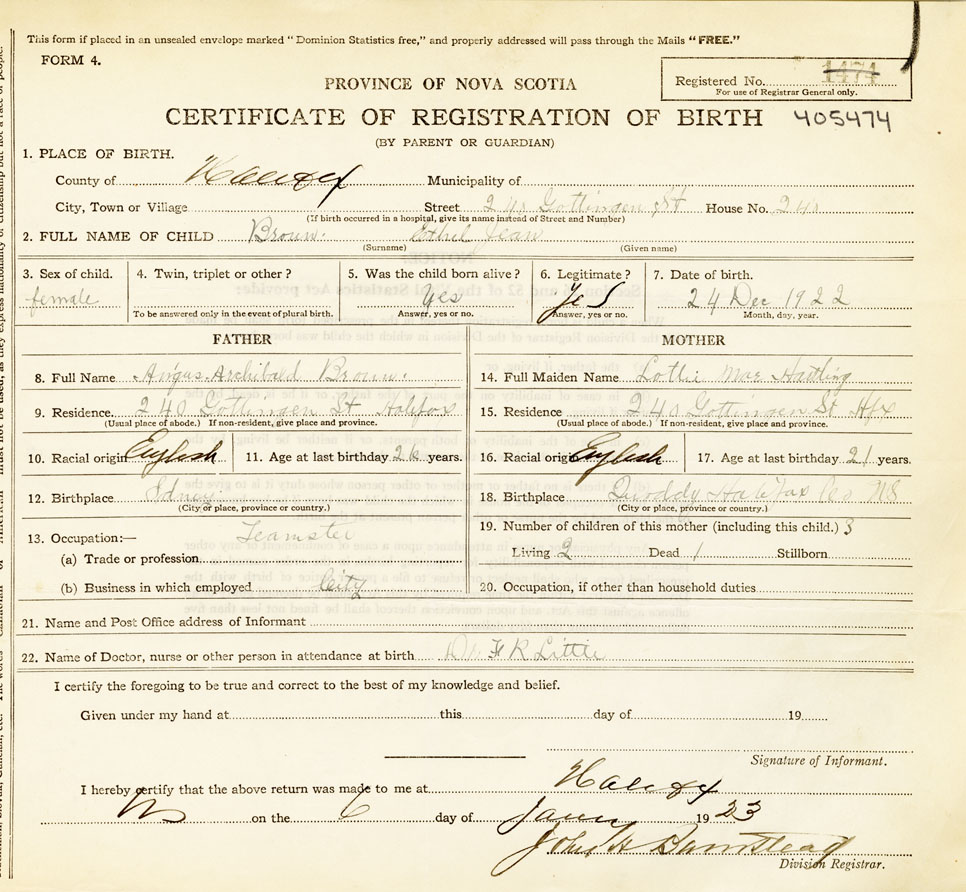 This form if placed in an unsealed envelope marked "Dominion Statistics free," and properly addressed will pass through the Mails "FREE."
FORM 4.
Registered No. 1474
For use of Registrar General only.
PROVINCE OF NOVA SCOTIA
CERTIFICATE OF REGISTRATION OF BIRTH 405474
(BY PARENT OR GUARDIAN)
1. PLACE OF BIRTH.
County of Halifax Municipality of
City, Town or Village Street Gottingen St House No.
(If birth occurred in a hospital, give its name instead of Street and Number)
2. FULL NAME OF CHILD Brown. Ethel Jean
(Surname) (Given name)
3. Sex of child. 4. Twin, triplet or other? 5. Was the child born alive? 6. Legitimate? 7. Date of birth.
female Yes Yes 24 Dec 1922
To be answered only in the event of plural birth. Answer, yes or no. Answer, yes or no. Month, day, year.
FATHER MOTHER
8. Full Name Angus Archibald Brown. 14. Full Maiden Name Lottie Mae Hartling
9. Residence. 240 Gottingen St Halifax 15. Residence 240 Gottingen St Hfx
(Usual place of abode.) If non-resident, give place and province. (Usual place of abode.) If non-resident, give place and province.
10. Racial origin English 11. Age at last birthday 26 years. 16. Racial origin English 17. Age at last birthday 21 years.
12. Birthplace Sdney 18. Birthplace Quoddy Halifax Co NS
(City or place, province or country.) (City or place, province or country.)
13. Occupation:— Teamster 19. Number of children of this mother (including this child.) 3
(a) Trade or profession Living 2 Dead 1 Stillborn
(b) Business in which employed City 20. Occupation, if other than household duties
21. Name and Post Office address of Informant
22. Name of Doctor, nurse or other person in attendance at birth Dr F R Little
I certify the foregoing to be true and correct to the best of my knowledge and belief.
Given under my hand at this day of 19
Signature of Informant.
I hereby certify that the above return was made to me at Halifax
on the 6 day of Jany 1923
John H Barnstead
Division Registrar.